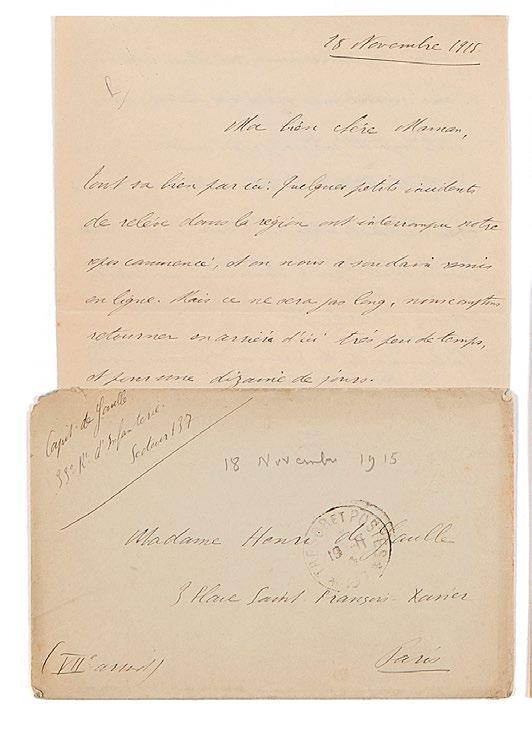 18 Novembre 1915
Ma bien chère Maman,
Tout va bien par ici. Quelques petits incidents
de relève dans la région ont interrompu notre
repos commencé, et on nous a soudain remis
en ligne. Mais ce ne sera pas long, nous comptons
retourner en arrière d'ici très peu de temps,
et pour une dizaine de jours.
Capit. de Gaulle
33e Rt d'Infanterie
Secteur 137
18 Novembre 1915
Madame Henri de Gaulle
3 Place Saint-François-Xavier
(VIIe arrodt)
Paris
ET POSTES
19